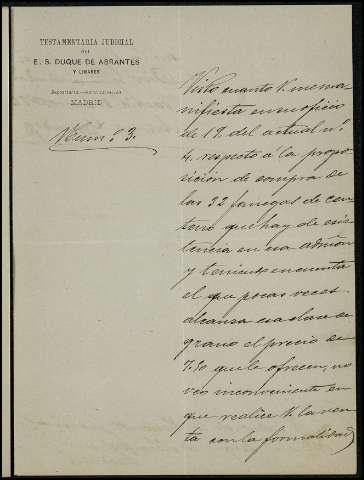 TESTAMENTARIA JUDICIAL
DEL
E. S. DUQUE DE ABRANTES
Y LINARES
MADRID
Num.º 3.
Visto cuanto V. me ma-
nifiesta en su oficio
de 19 del actual nº
4. respecto á la propo-
sición de compra de
las 32 fanegas de cen-
teno que hay de exis-
tencia en esa admon
y teniendo en cuenta
el que pocas veces
alcanza esa clase de
grano el precio de
7.50 que le ofrecen, no
veo inconveniente en
que realice V. la ven-
ta con la formalidad